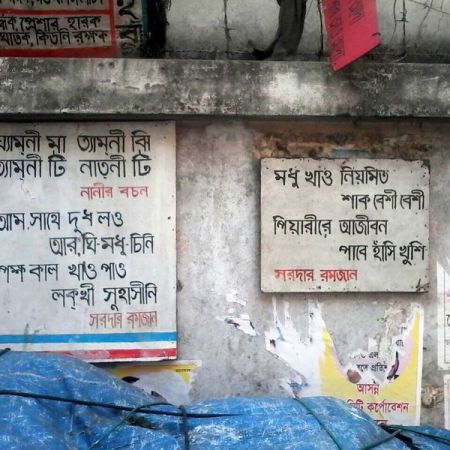 প্রেশার, হারক
ঘাতক, কিডনি রক্ষক
য্যামনী মা ত্যামনী ঝি
ত্যামনী টি নাত্নী টি
নানীর বচন
আম সাথে দুধ লও
আর, ঘি-মধু-চিনি
পক্ষ কাল খাও পাও
লক্ষী সুহাসীনি
সরদার রমজান
মধু খাও নিয়মিত
শাক বেশী বেশী
পিয়ারীরে আজীবন
পাবে হাঁসি খুশি
সরদার রমজান
আসন্ন
সিটি কর্পোরেশন